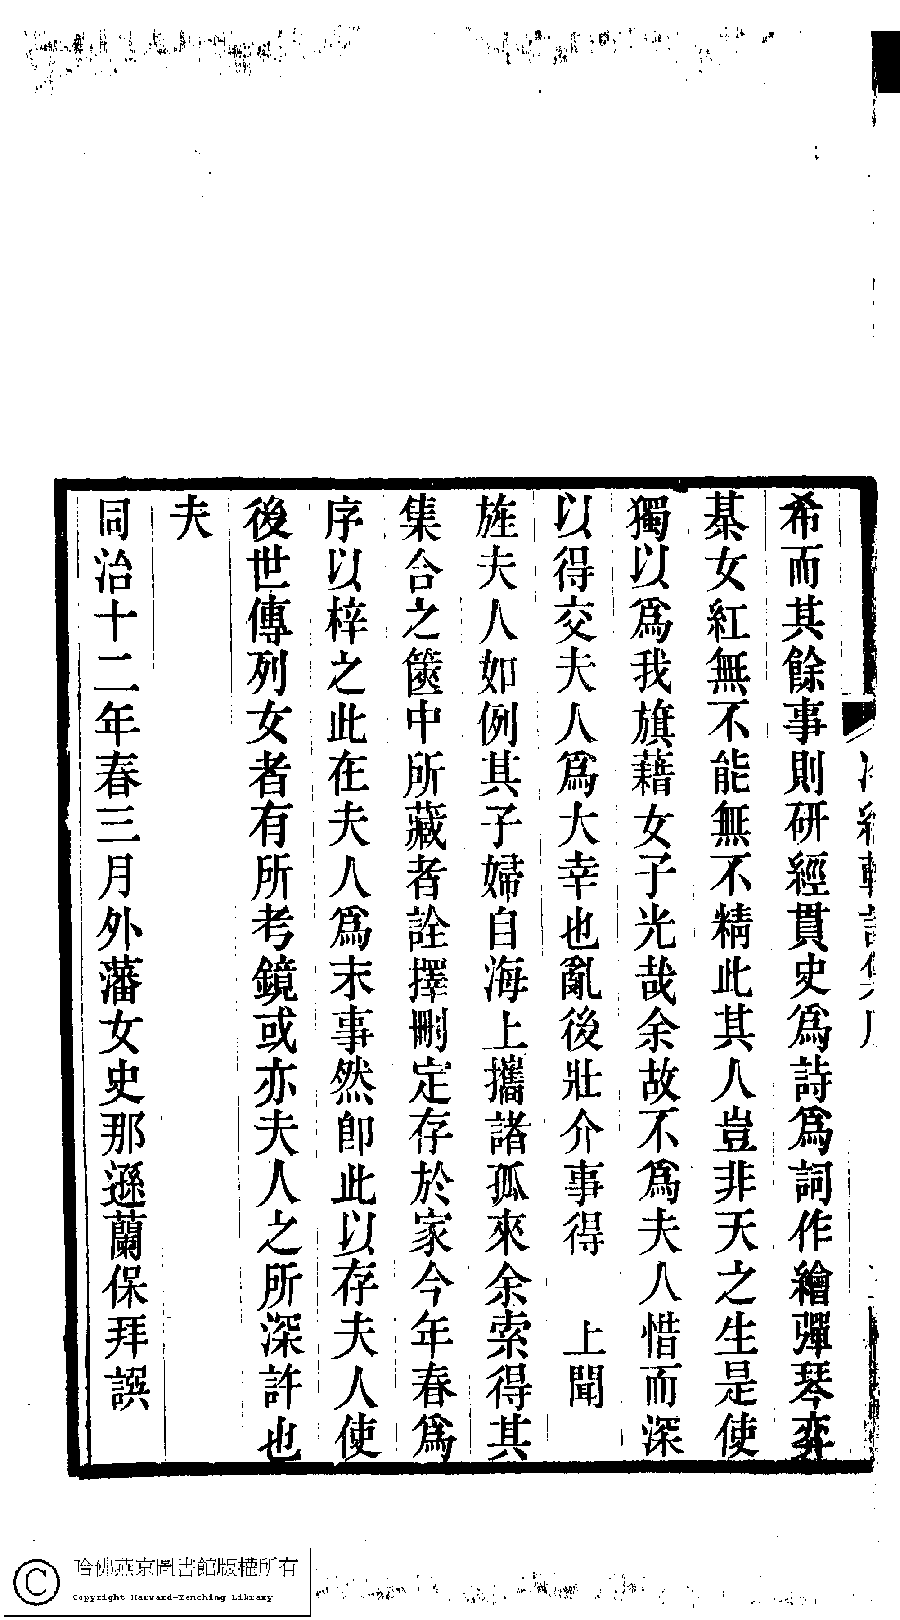 希而其餘事則研經貫史爲詩爲詞作繪彈琴弈
棊女紅無不能無不精此其人豈非天之生是使
獨以爲我旗藉女子光哉余故不爲夫人惜而深
以得交夫人爲大幸也亂後壯介事得　上聞
旌夫人如例其子婦自海上攜諸孤來余索得其
集合之篋中所藏者詮擇刪定存於家今年春爲
序以梓之此在夫人爲末事然卽此以存夫人使
後世傳列女者有所考鏡或亦夫人之所深許也
夫
同治十二年春三月外藩女史那遜蘭保拜譔
哈佛燕京圖書館版權所有
Copyright Harvard-Yenching Library